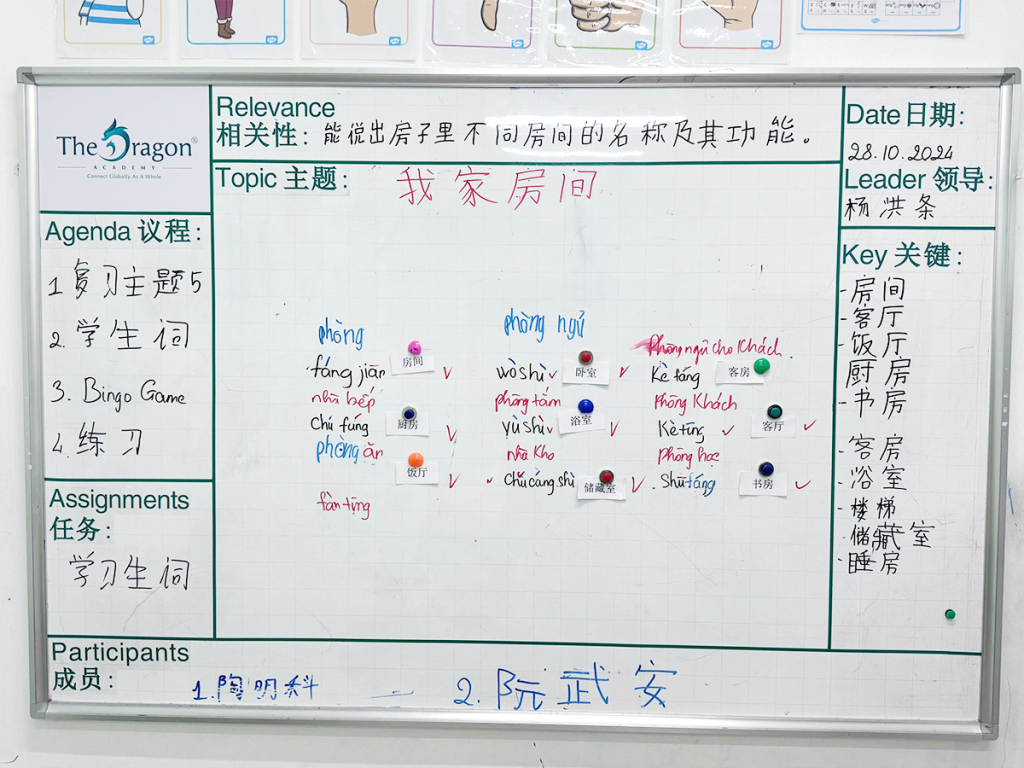 The Dragon®
ACADEMY
Connect Globally As A Whole
Relevance
相关性: 能说出房子里不同房间的名称及其功能。
Date 日期:
28.10.2024
Leader 领导:
杨洪条
Topic 主题: 我家房间
Agenda 议程:
1 复习主题5
2. 学生词
3. Bingo Game
4. 练习
Assignments
任务:
学习生词
phòng
fáng jiān 房间
nhà bếp
Chú fáng 厨房
phòng ăn
饭厅
fàn tīng
phòng ngủ
wò shì 卧室
phòng tắm
yù shì 浴室
nhà kho
Chǔ cáng shì 储藏室
Phòng ngủ cho Khách.
Kè fáng 客房
Phòng Khách
Kè tīng 客厅
Phòng học
Shū fáng 书房
Key 关键:
- 房间
- 客厅
- 饭厅
厨房
- 书房
- 客房
- 浴室
- 楼梯
- 储藏室
- 睡房
Participants
成员:
1. 陶明科
2. 阮武安